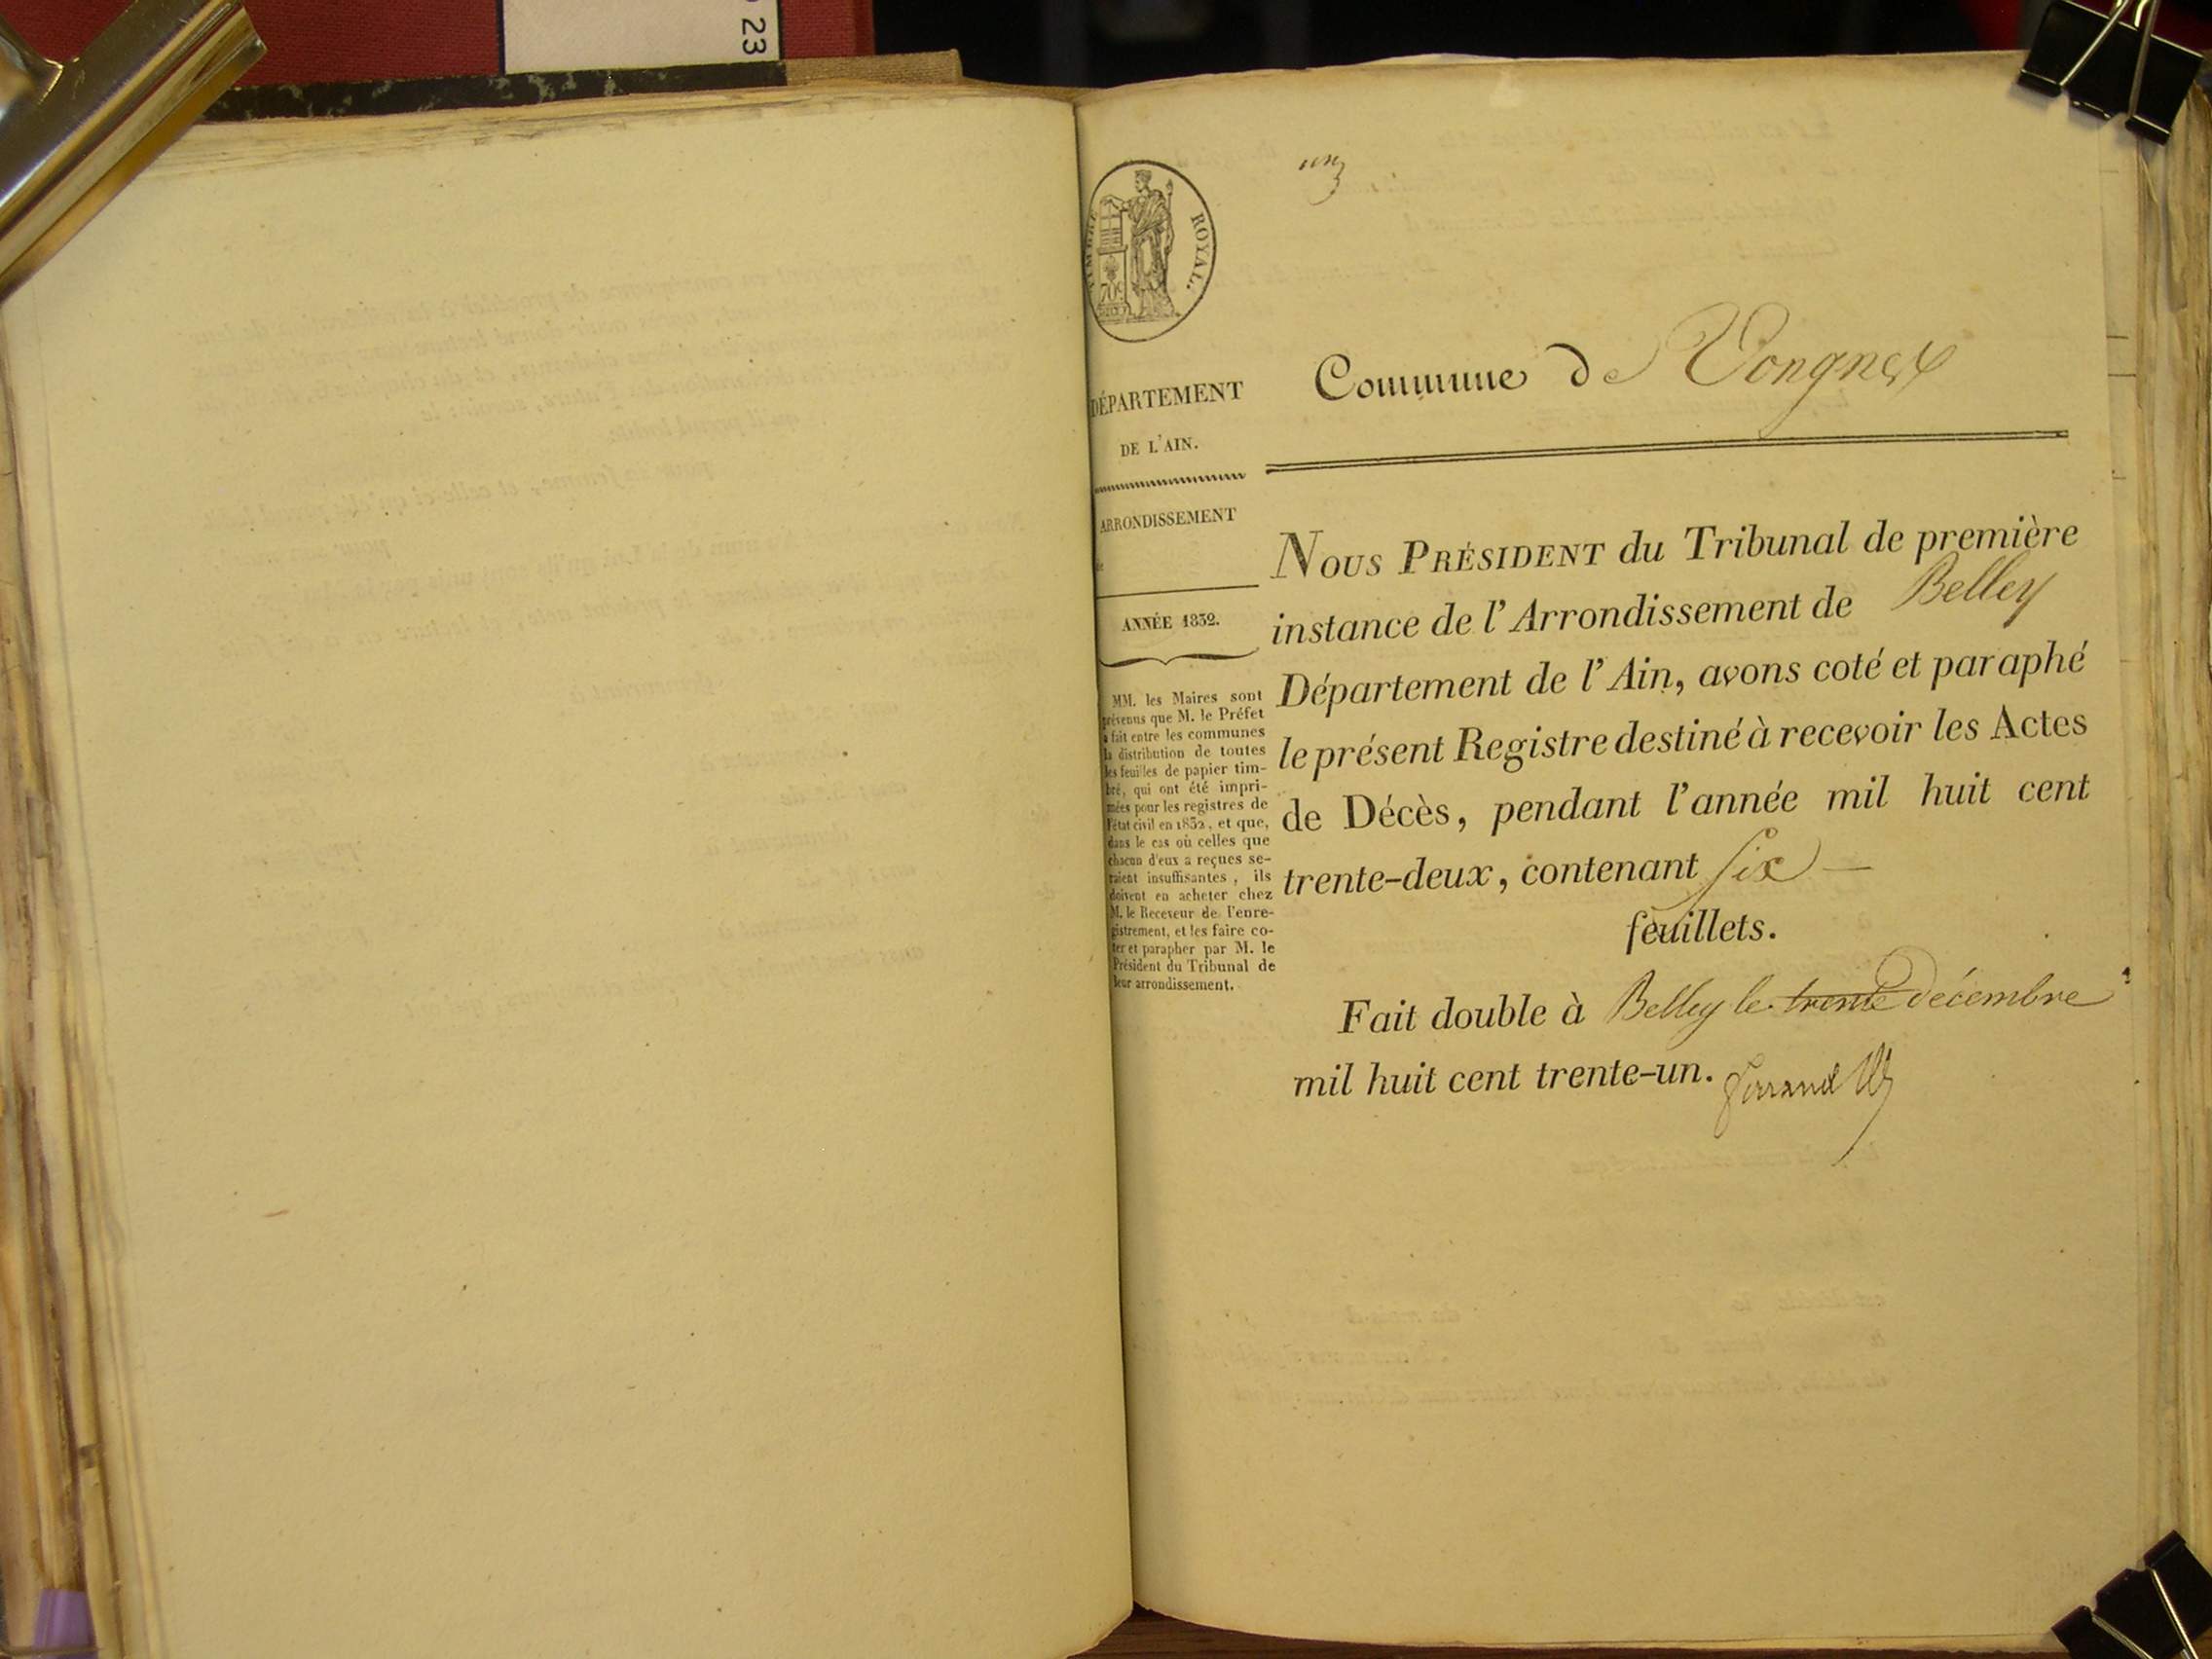 23
un
TIMBRE ROYAL.
DÉPARTEMENT
DE L'AIN.
ARRONDISSEMENT
de
ANNÉE 1832.
MM. les Maires sont
prévenus que M. le Préfet
a fait entre les communes
la distribution de toutes
les feuilles de papier tim-
bré, qui ont été impri-
mées pour les registres de
l'état civil en 1832, et que,
dans le cas où celles que
chacun d'eux a reçues se-
raient insuffisantes, ils
doivent en acheter chez
M. le Receveur de l'enre-
gistrement, et les faire co-
ter et parapher par M. le
Président du Tribunal de
leur arrondissement.
Commune de Vongnex
NOUS PRÉSIDENT du Tribunal de première
instance de l'Arrondissement de Belley
Département de l'Ain, avons coté et paraphé
le présent Registre destiné à recevoir les Actes
de Décès, pendant l'année mil huit cent
trente-deux, contenant six —
feuillets.
Fait double à Belley le trente décembre
mil huit cent trente-un.